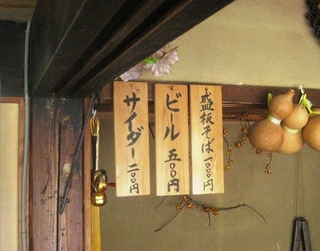 盛板そば 一,〇〇〇円
ビール 五〇〇円
サイダー 二〇〇円